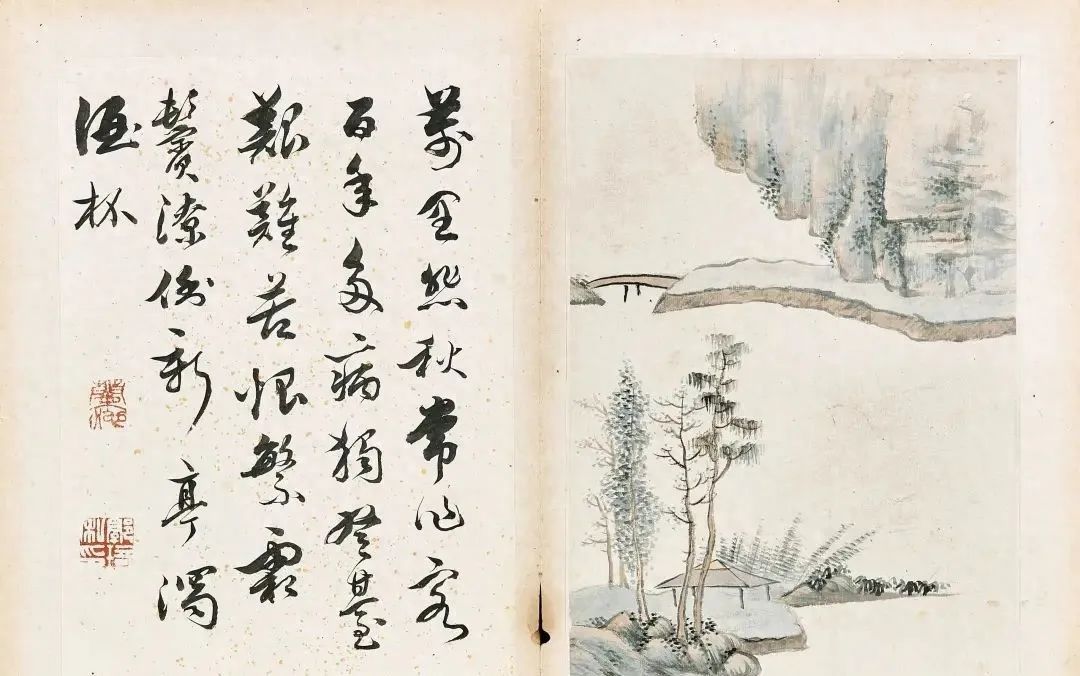 萬里悲秋常作客
百年多病獨登臺
艱難苦恨繁霜
鬢潦倒新亭濁
酒杯